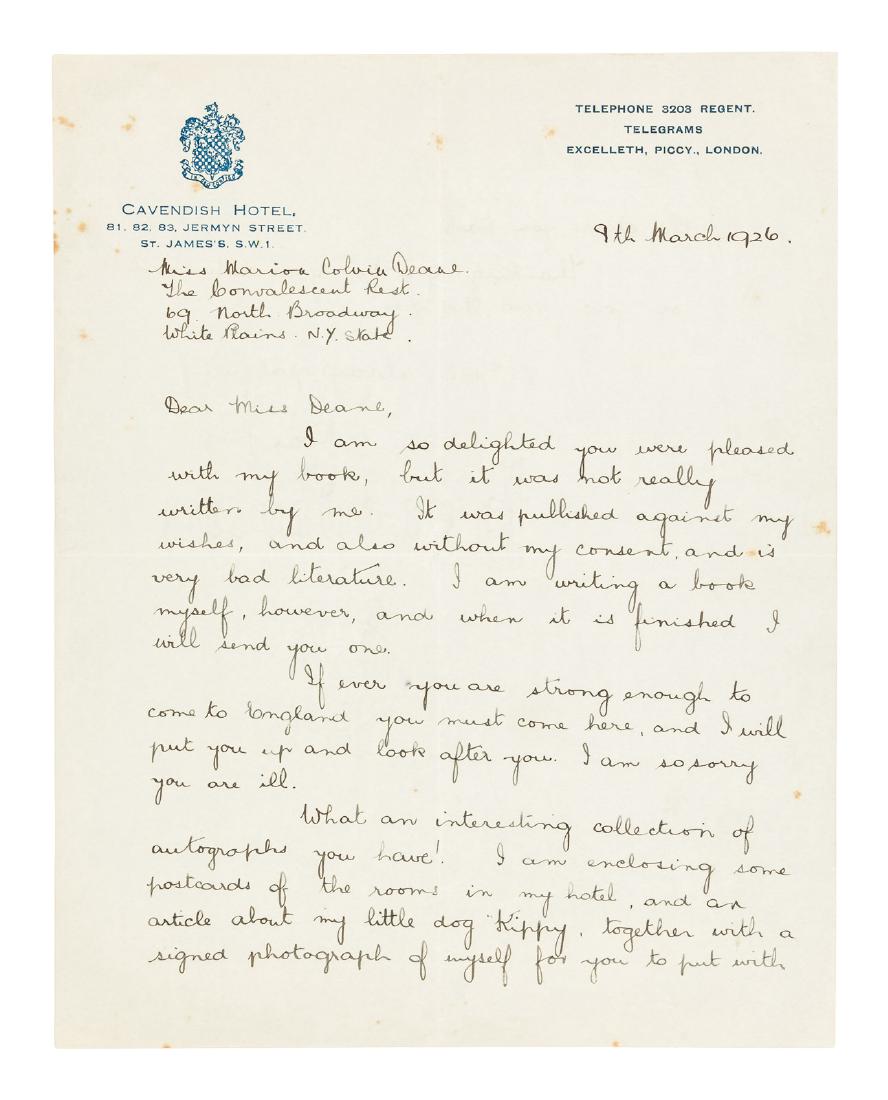 TELEPHONE 3203 REGENT.
TELEGRAMS
EXCELLETH, PICCY., LONDON.
CAVENDISH HOTEL,
81. 82. 83, JERMYN STREET.
ST. JAMES'S. S.W.1.
9th March 1926.
Miss Marion Colvin Deane.
The Convalescent Rest.
69 North Broadway.
White Plains. N.Y. State.
Dear Miss Deane,
I am so delighted you were pleased
with my book, but it was not really
written by me. It was published against my
wishes, and also without my consent, and is
very bad literature. I am writing a book
myself, however, and when it is finished I
will send you one.
If ever you are strong enough to
come to England you must come here, and I will
put you up and look after you. I am so sorry
you are ill.
What an interesting collection of
autographs you have! I am enclosing some
postcards of the rooms in my hotel, and an
article about my little dog "Kippy, together with a
signed photograph of myself for you to put with